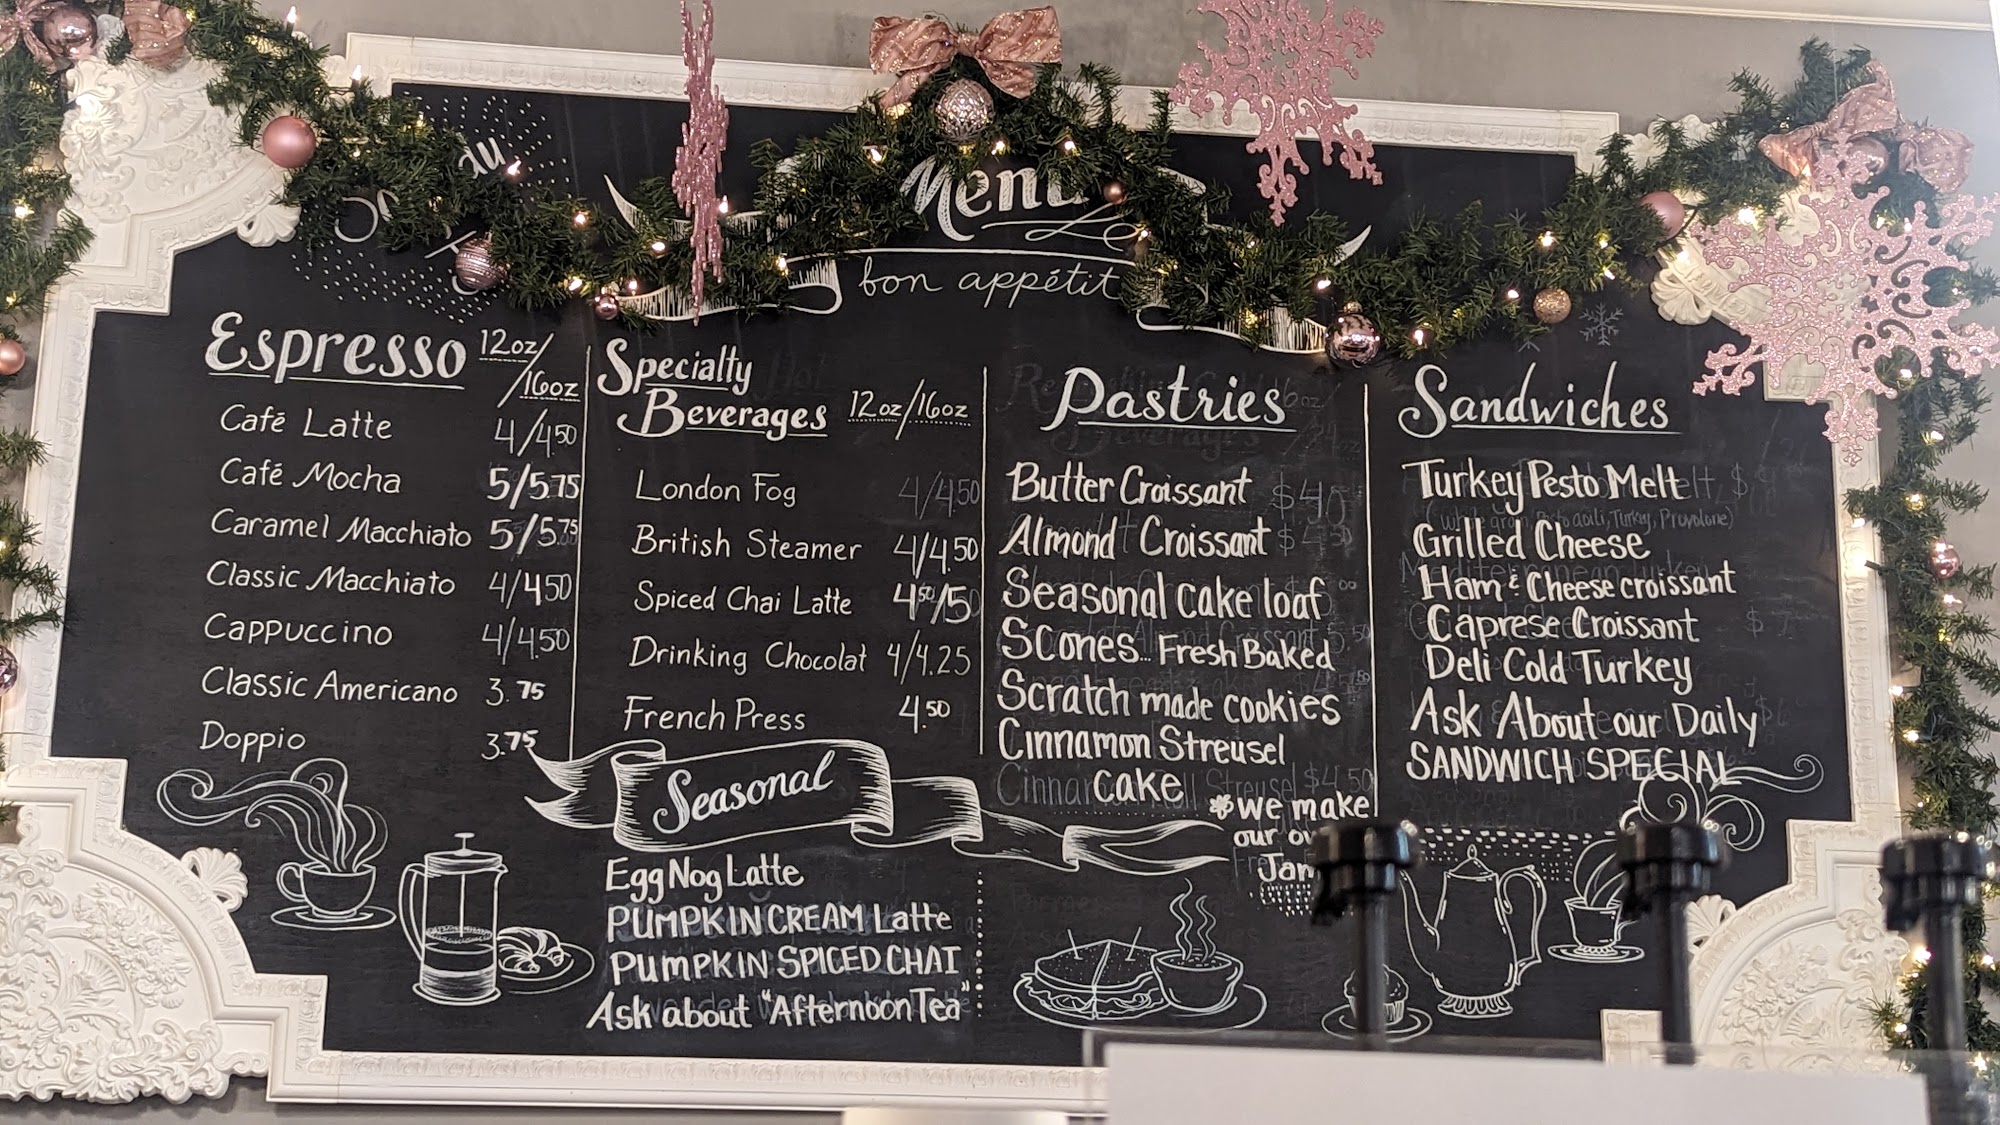 Menu
bon appétit
Espresso 12oz/16oz
Café Latte 4/4.50
Café Mocha 5/5.75
Caramel Macchiato 5/5.75
Classic Macchiato 4/4.50
Cappuccino 4/4.50
Classic Americano 3.75
Doppio 3.75
Specialty
Beverages 12oz/16oz
London Fog 4/4.50
British Steamer 4/4.50
Spiced Chai Latte 4.50/5
Drinking Chocolat 4/4.25
French Press 4.50
Seasonal
Egg Nog Latte
PUMPKIN CREAM Latte
PUMPKIN SPICED CHAI
Ask about "Afternoon Tea"
Pastries
Butter Croissant
Almond Croissant
Seasonal cake loaf
Scones... Fresh Baked
Scratch made cookies
Cinnamon Streusel
cake
*we make
our
Jam
Sandwiches
Turkey Pesto Melt
Grilled Cheese
Ham & Cheese croissant
Caprese Croissant
Deli Cold Turkey
Ask About our Daily
SANDWICH SPECIAL